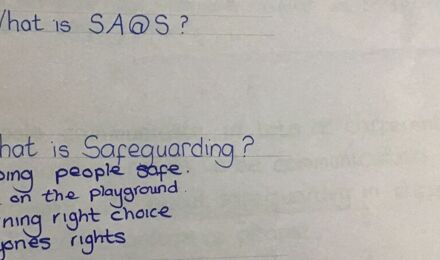 What is SA@S?
What is Safeguarding?
people safe.
on the playground.
right choice
rights